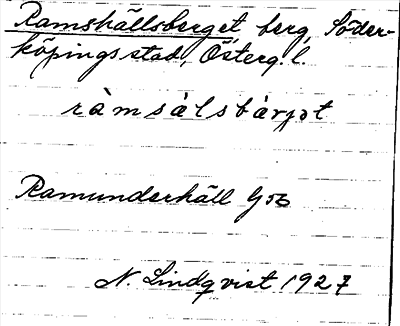 Ramshällsberget berg, Söder-
köpings stad, Österg. l.
ràmsàlsbàrjət
Ramunderhäll
N. Lindqvist 1927